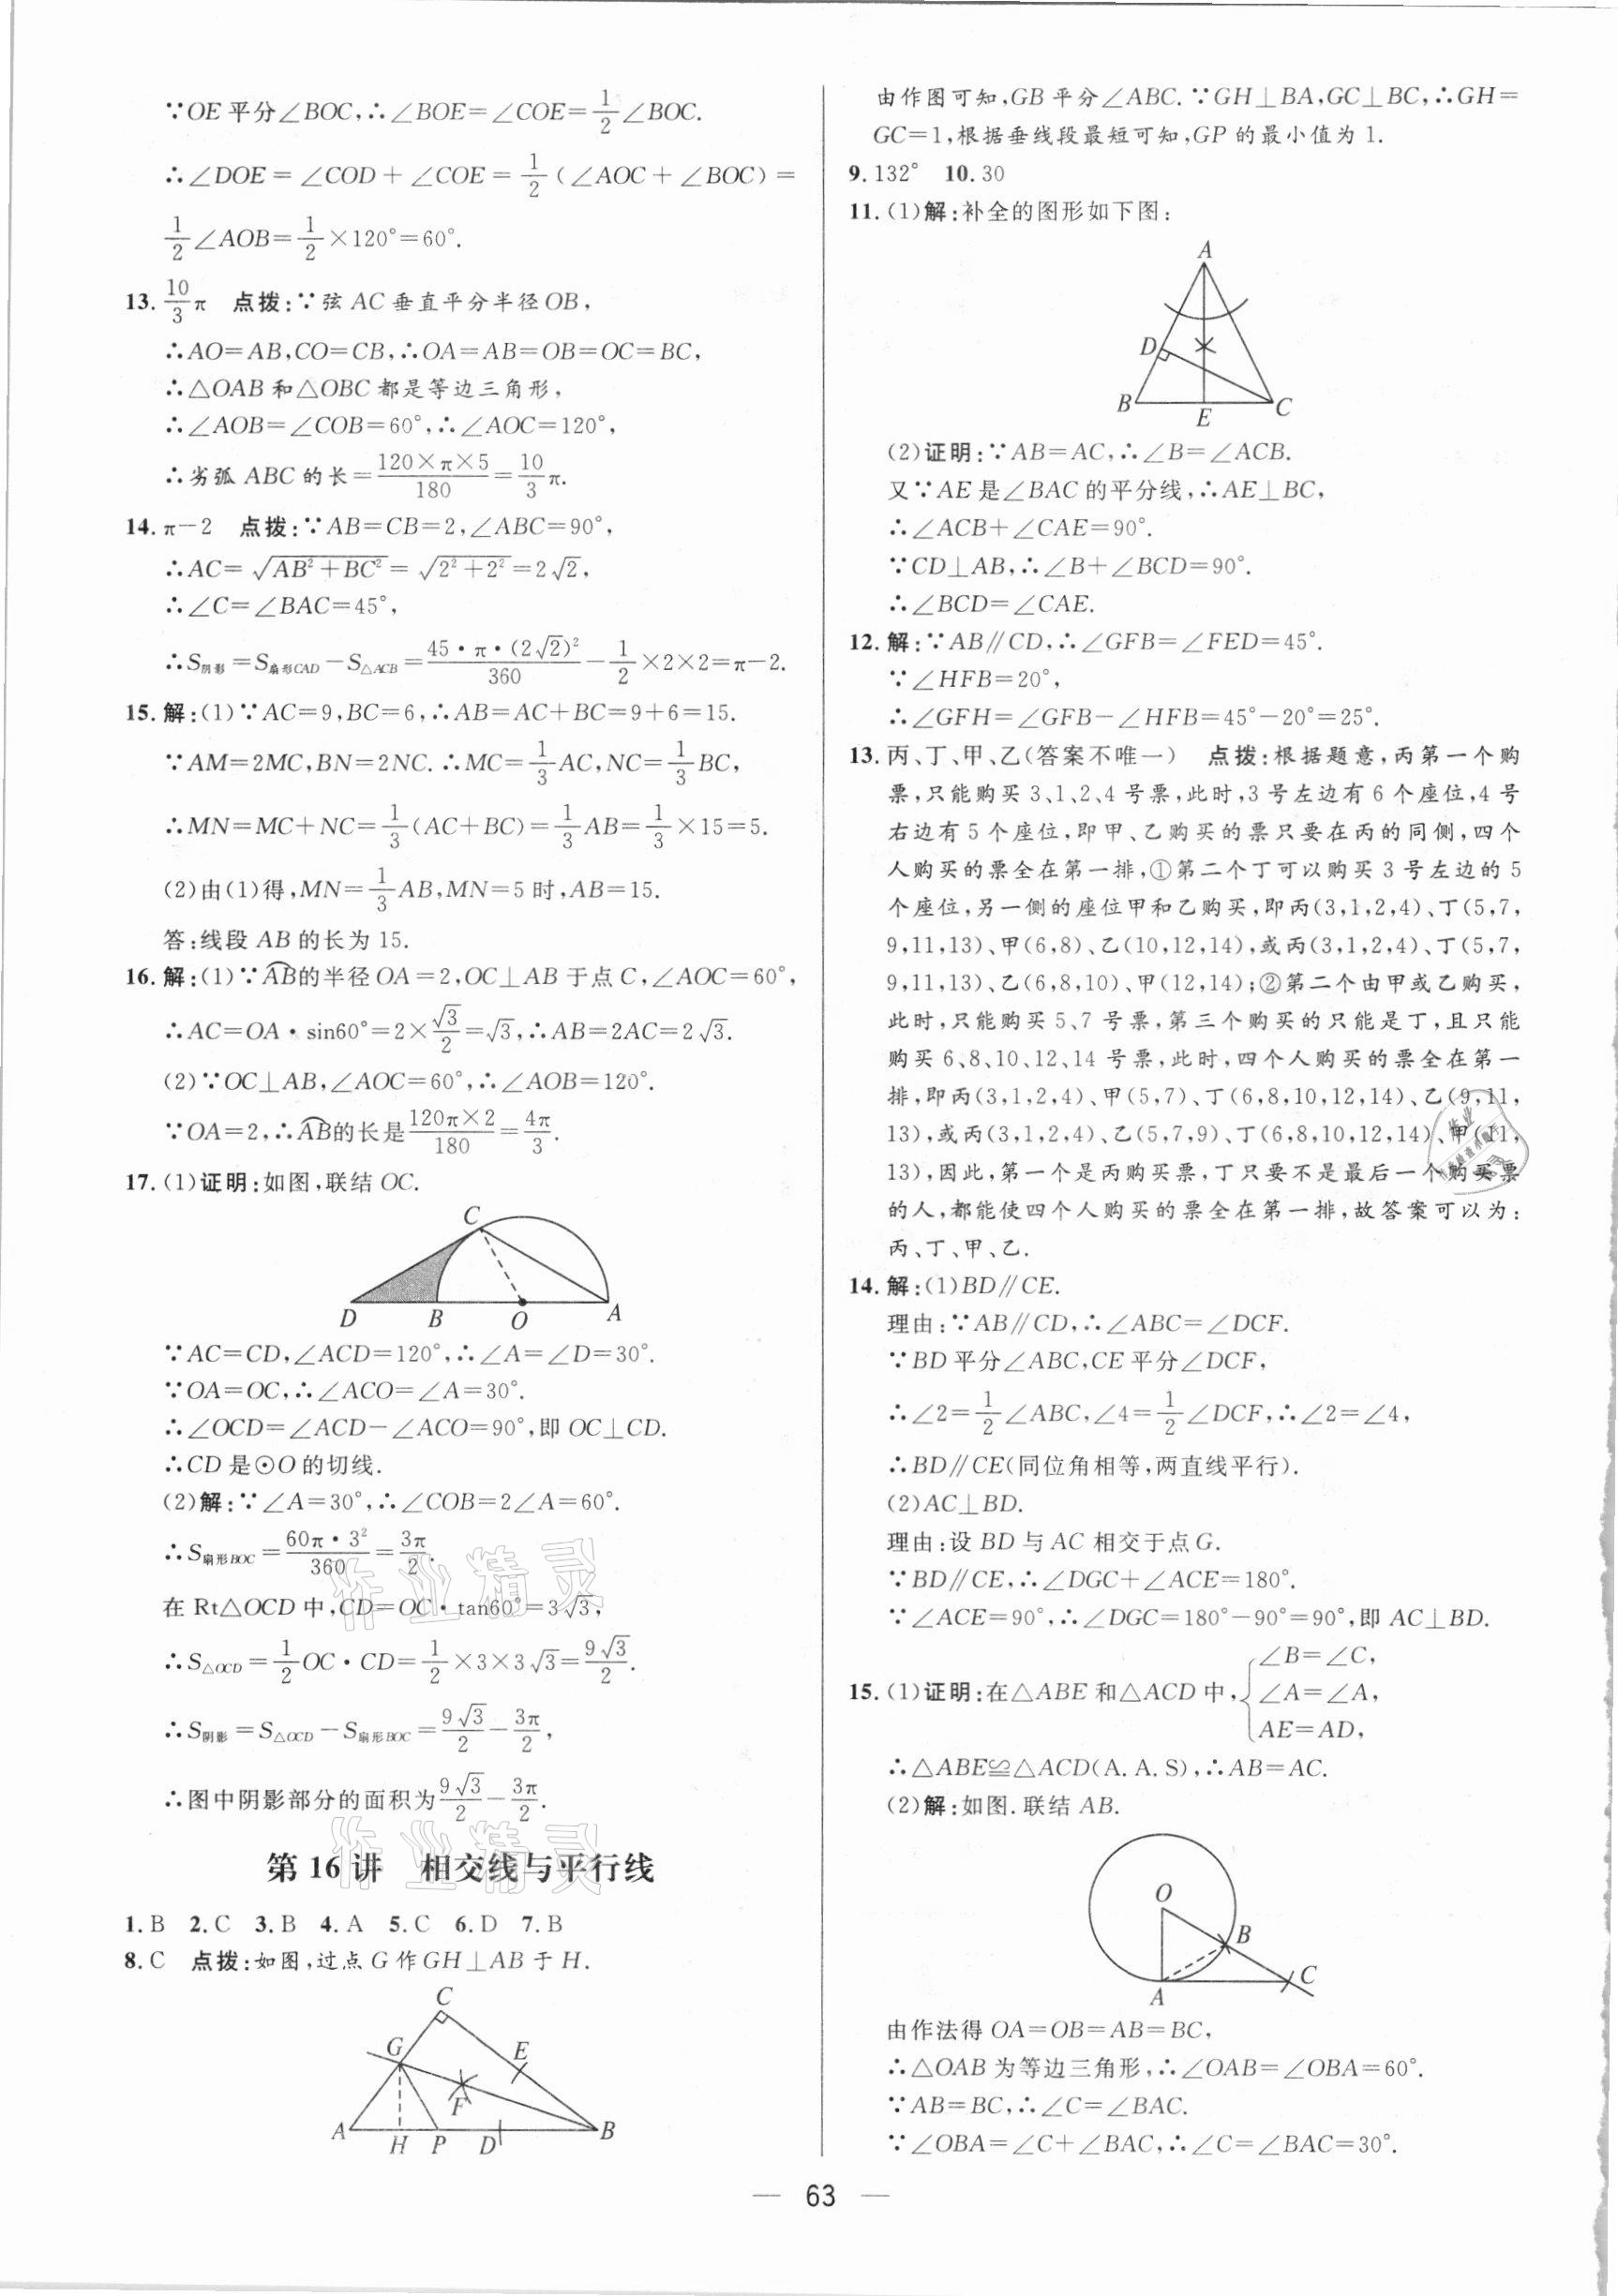 ∵OE平分∠BOC,∴∠BOE=∠COE=1/2∠BOC.
∴∠DOE=∠COD+∠COE=1/2(∠AOC+∠BOC)=
1/2∠AOB=1/2×120°=60°.
13. 10/3π 点拨:∵弦AC垂直平分半径OB,
∴AO=AB,CO=CB,∴OA=AB=OB=OC=BC,
∴△OAB和△OBC都是等边三角形,
∴∠AOB=∠COB=60°,∴∠AOC=120°,
∴劣弧ABC的长=120×π×5/180=10/3π.
14. π-2 点拨:∵AB=CB=2,∠ABC=90°,
∴AC=√(AB²+BC²)=√(2²+2²)=2√2,
∴∠C=∠BAC=45°,
∴S阴影=S扇形CAD-S△ACB=45·π·(2√2)²/360-1/2×2×2=π-2.
15. 解:(1)∵AC=9,BC=6,∴AB=AC+BC=9+6=15.
∵AM=2MC,BN=2NC.∴MC=1/3AC,NC=1/3BC,
∴MN=MC+NC=1/3(AC+BC)=1/3AB=1/3×15=5.
(2)由(1)得,MN=1/3AB,MN=5时,AB=15.
答:线段AB的长为15.
16. 解:(1)∵AB⌒的半径OA=2,OC⊥AB于点C,∠AOC=60°,
∴AC=OA·sin60°=2×√3/2=√3,∴AB=2AC=2√3.
(2)∵OC⊥AB,∠AOC=60°,∴∠AOB=120°.
∵OA=2,∴AB⌒的长是120π×2/180=4π/3.
17. (1)证明:如图,联结OC.
C
D B O A
∵AC=CD,∠ACD=120°,∴∠A=∠D=30°.
∵OA=OC,∴∠ACO=∠A=30°.
∴∠OCD=∠ACD-∠ACO=90°,即OC⊥CD.
∴CD是⊙O的切线.
(2)解:∵∠A=30°,∴∠COB=2∠A=60°.
∴S扇形BOC=60π·3²/360=3π/2.
在Rt△OCD中,CD=OC·tan60°=3√3,
∴S△OCD=1/2OC·CD=1/2×3×3√3=9√3/2.
∴S阴影=S△OCD-S扇形BOC=9√3/2-3π/2,
∴图中阴影部分的面积为9√3/2-3π/2.
第16讲 相交线与平行线
1. B 2. C 3. B 4. A 5. C 6. D 7. B
8. C 点拨:如图,过点G作GH⊥AB于H.
C
G E
F
A H P D B
由作图可知,GB平分∠ABC.∵GH⊥BA,GC⊥BC,∴GH=
GC=1,根据垂线段最短可知,GP的最小值为1.
9. 132° 10. 30
11. (1)解:补全的图形如下图:
A
D
B E C
(2)证明:∵AB=AC,∴∠B=∠ACB.
又∵AE是∠BAC的平分线,∴AE⊥BC,
∴∠ACB+∠CAE=90°.
∵CD⊥AB,∴∠B+∠BCD=90°.
∴∠BCD=∠CAE.
12. 解:∵AB∥CD,∴∠GFB=∠FED=45°.
∵∠HFB=20°,
∴∠GFH=∠GFB-∠HFB=45°-20°=25°.
13. 丙、丁、甲、乙(答案不唯一) 点拨:根据题意,丙第一个购
票,只能购买3、1、2、4号票,此时,3号左边有6个座位,4号
右边有5个座位,即甲、乙购买的票只要在丙的同侧,四个
人购买的票全在第一排,①第二个丁可以购买3号左边的5
个座位,另一侧的座位甲和乙购买,即丙(3,1,2,4)、丁(5,7,
9,11,13)、甲(6,8)、乙(10,12,14),或丙(3,1,2,4)、丁(5,7,
9,11,13)、乙(6,8,10)、甲(12,14);②第二个由甲或乙购买,
此时,只能购买5、7号票,第三个购买的只能是丁,且只能
购买6、8、10、12、14号票,此时,四个人购买的票全在第一
排,即丙(3,1,2,4)、甲(5,7)、丁(6,8,10,12,14)、乙(9,11,
13),或丙(3,1,2,4)、乙(5,7,9)、丁(6,8,10,12,14)、甲(11,
13),因此,第一个是丙购买票,丁只要不是最后一个购买票
的人,都能使四个人购买的票全在第一排,故答案可以为:
丙、丁、甲、乙.
14. 解:(1)BD∥CE.
理由:∵AB∥CD,∴∠ABC=∠DCF.
∵BD平分∠ABC,CE平分∠DCF,
∴∠2=1/2∠ABC,∠4=1/2∠DCF,∴∠2=∠4,
∴BD∥CE(同位角相等,两直线平行).
(2)AC⊥BD.
理由:设BD与AC相交于点G.
∵BD∥CE,∴∠DGC+∠ACE=180°.
∵∠ACE=90°,∴∠DGC=180°-90°=90°,即AC⊥BD.
15. (1)证明:在△ABE和△ACD中,{∠B=∠C,
∠A=∠A,
AE=AD,
∴△ABE≌△ACD(A.A.S),∴AB=AC.
(2)解:如图.联结AB.
O
B
A C
由作法得OA=OB=AB=BC,
∴△OAB为等边三角形,∴∠OAB=∠OBA=60°.
∵AB=BC,∴∠C=∠BAC.
∵∠OBA=∠C+∠BAC,∴∠C=∠BAC=30°.
— 63 —
作业精灵
作业精灵